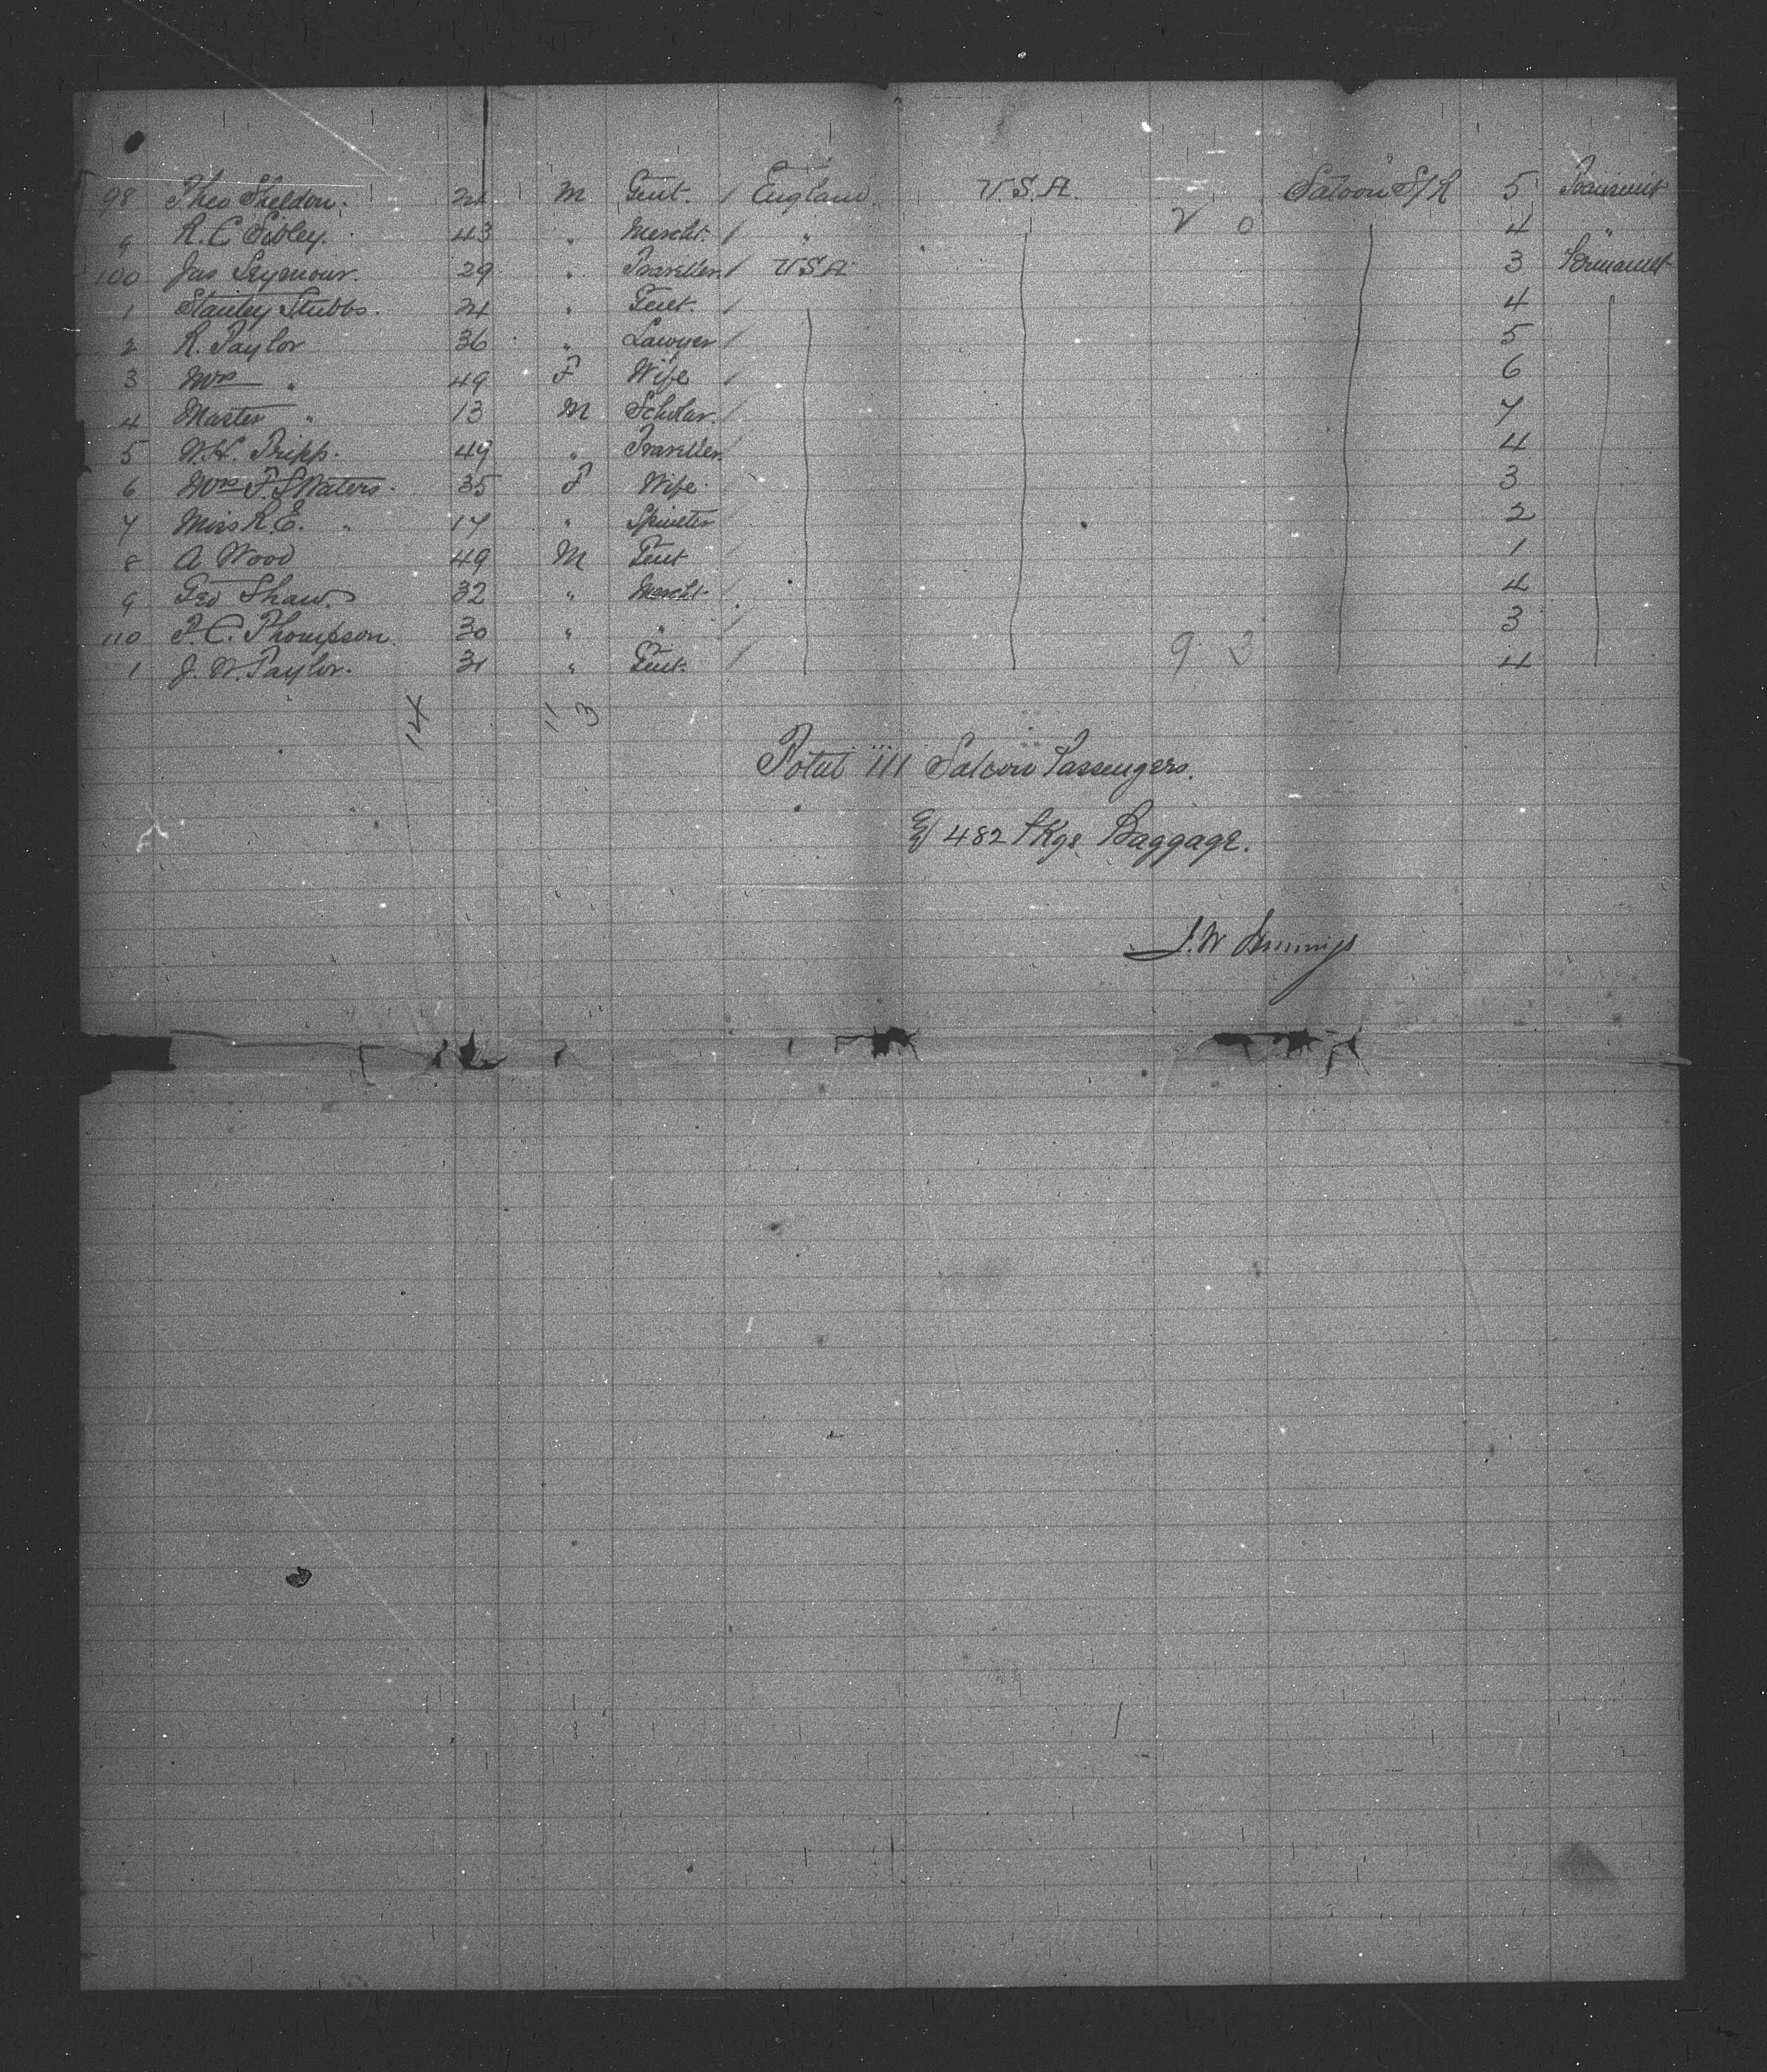 98 Theo Sheldon. 21 M Gent. / England. U.S.A. Saloon S/R 5 Transient
9 R. C Sibley. 43 " Mercht. / " 2 0 4 "
100 Jas Seymour. 29 " Traveller / U S A 3 Permanent
1 Stanley Stubbs. 24 " Gent. / 4
2 R. Taylor 36 " Lawyer / 5
3 Mrs " 49 F Wife / 6
4 Master " 13 M Scholar. / 7
5 W. H. Tripp. 49 " Traveller. 4
6 Mrs F. S Waters. 35 F Wife. 3
7 Miss R. E. " 17 " Spinster 2
8 A Wood 49 M Gent 1
9 Geo Shaw. 32 " Mercht 4
110 T. C. Thompson. 30 " " 3
1 J. W. Taylor. 31 " Gent. / 9 3 4
14 11 3
Total 111 Saloon Passengers.
& 482 Pkgs Baggage.
J. W Jennings